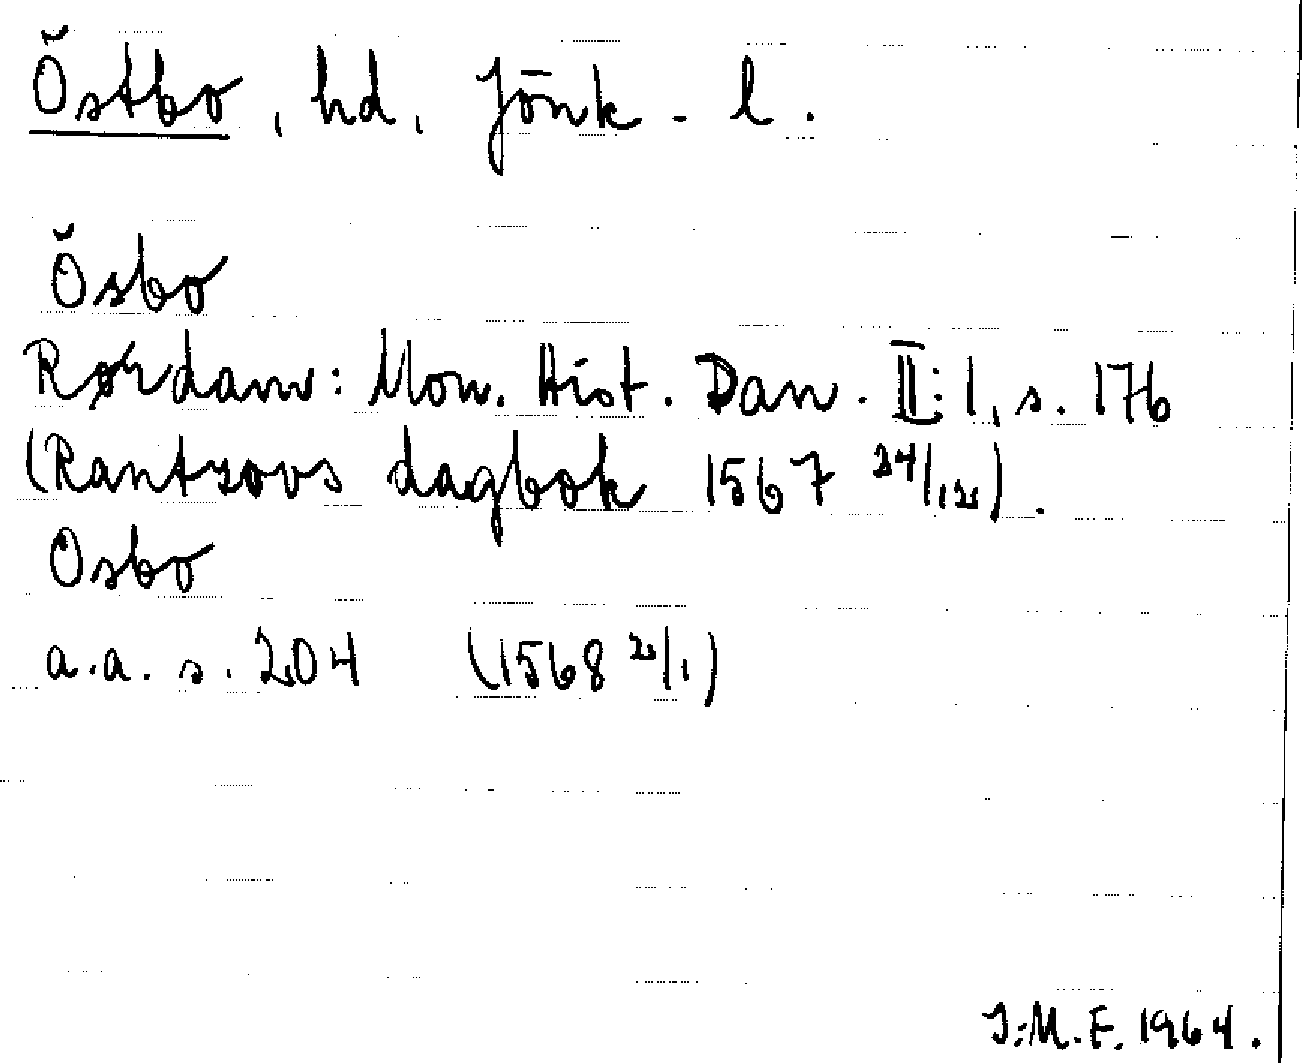 Östbo, hd, Jönk. l.
Ösbo
Rørdam: Mon. Hist. Dan. II:1, s. 176
(Rantzovs dagbok 1567 24/12).
Osbo
a.a. s. 204 (1568 2/1)
J.M.F. 1964.